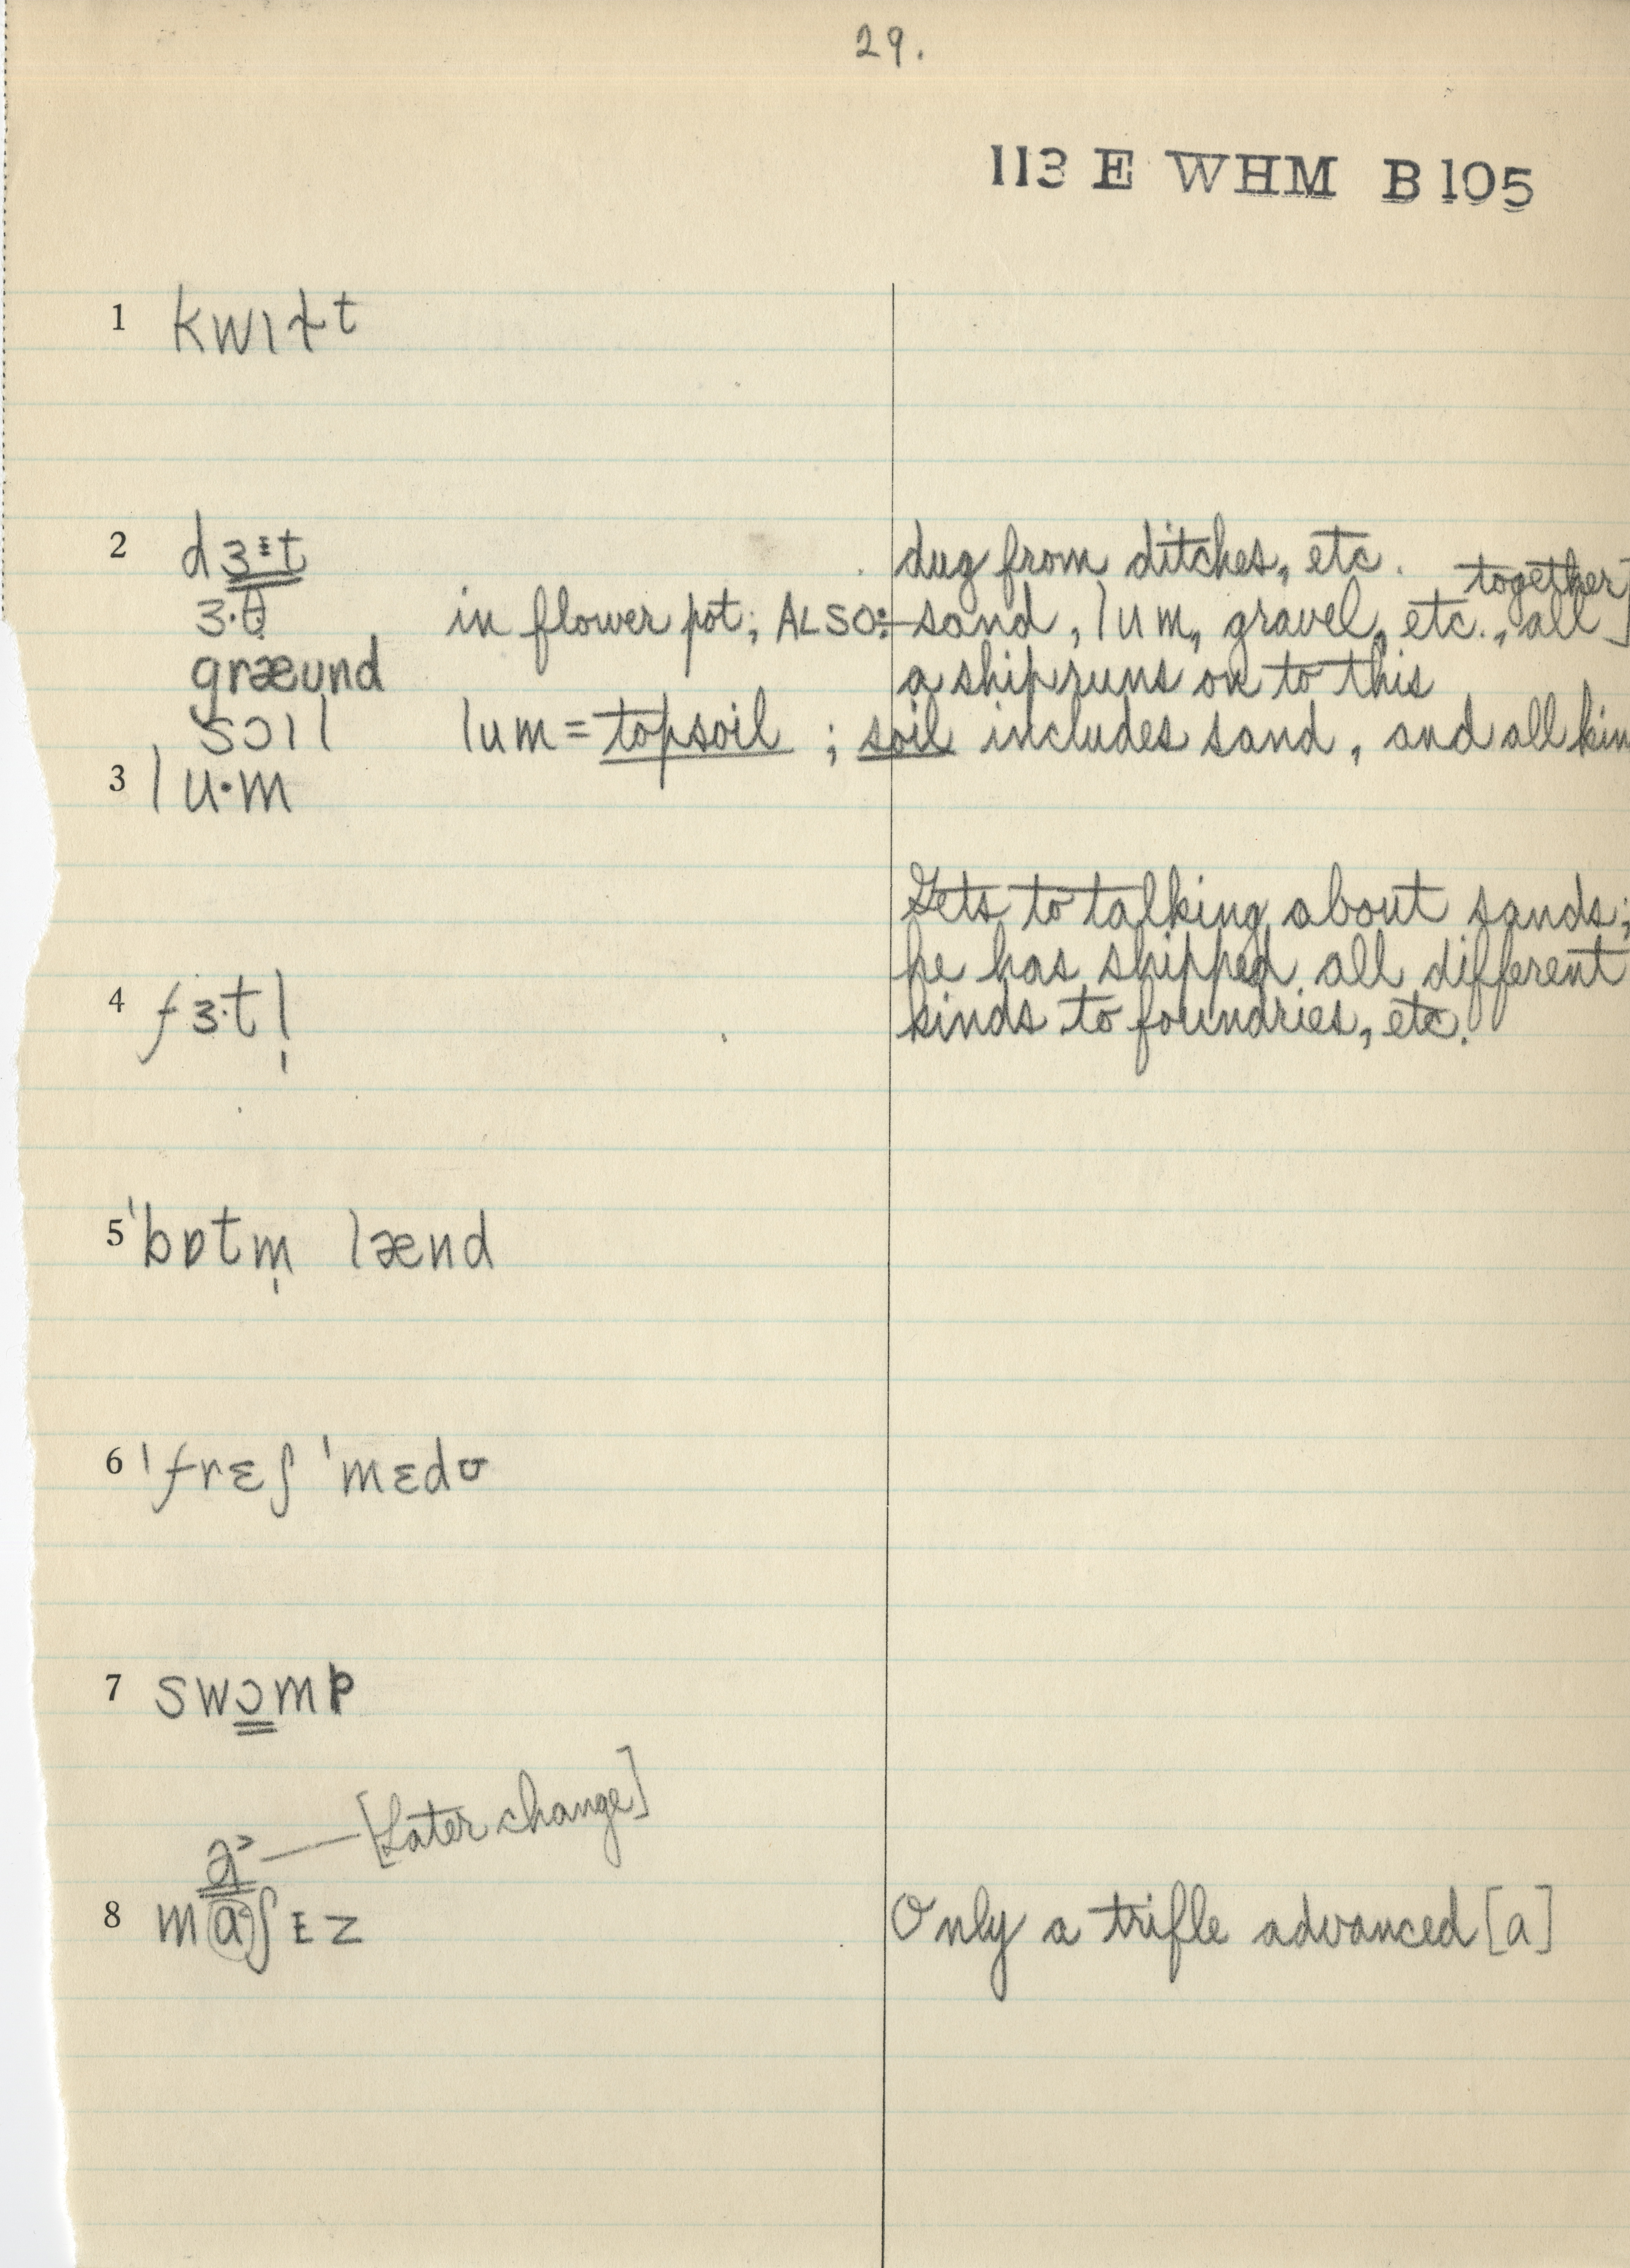 29.
113 E WHM B105
1 kwɪɫt
2 dɜᵻt dug from ditches, etc. together]
ɜ·θ in flower pot; ALSO: sand, lum, gravel, etc., all
græund a ship runs on to this
sɔɪl lum = topsoil ; soil includes sand, and all kin
3 lu·m
Gets to talking about sands;
he has shipped all different
4 fɜ·tl̩ kinds to foundries, etc.
5 'bɒtm̩ lænd
6 'frɛʃ 'mɛdʊ
7 swɔmp
a˃ — [Later change]
8 maʃɪz Only a trifle advanced [a]